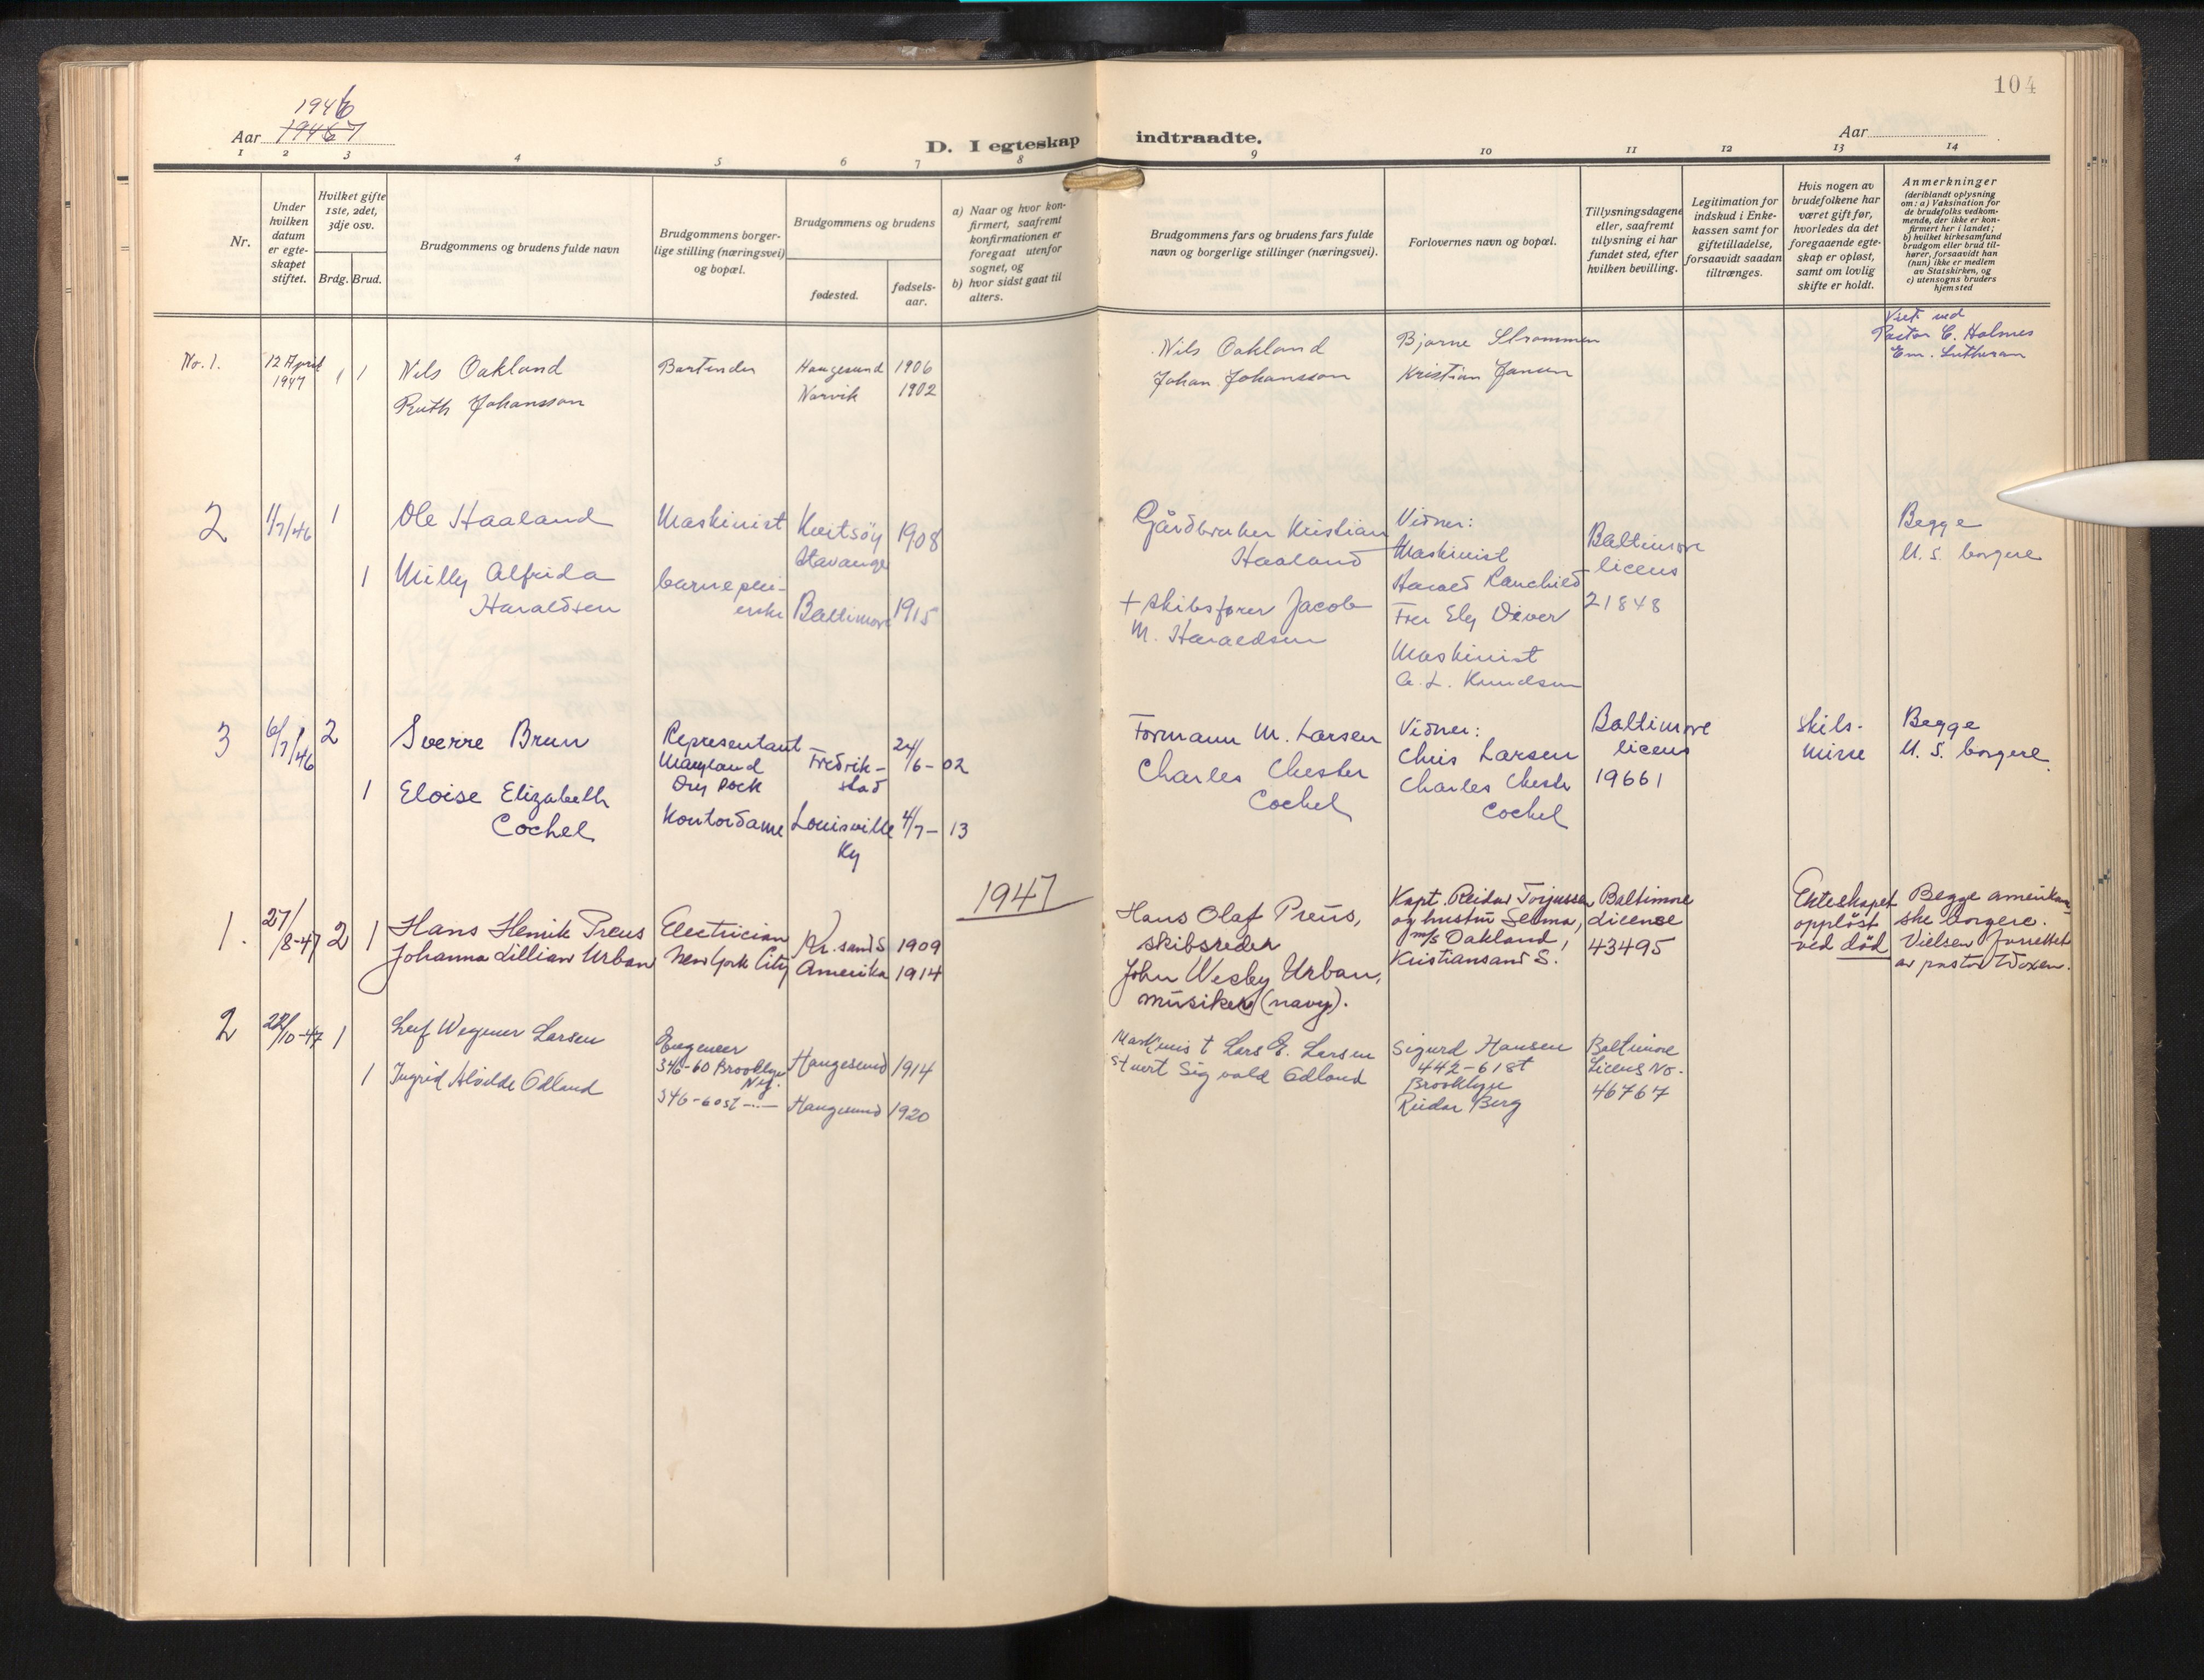 104
1946
Aar 19467
D. I egteskap indtraadte.
Aar
1 2 3 4 5 6 7 8 9 10 11 12 13 14
Nr.
Under hvilken datum er egte-skapet stiftet.
Hvilket gifte 1ste, 2det, 3dje osv.
Brdg. Brud.
Brudgommens og brudens fulde navn
Brudgommens borger-
lige stilling (næringsvei)
og bopæl.
Brudgommens og brudens
fødested.
fødsels-
aar.
a) Naar og hvor kon-
firmert, saafremt
konfirmationen er
foregaat utenfor
sognet, og
b) hvor sidst gaat til
alters.
Brudgommens fars og brudens fars fulde
navn og borgerlige stillinger (næringsvei).
Forlovernes navn og bopæl.
Tillysningsdagene
eller, saafremt
tillysning ei har
fundet sted, efter
hvilken bevilling.
Legitimation for
indskud i Enke-
kassen samt for
giftetilladelse,
forsaavidt saadan
tiltrænges.
Hvis nogen av
brudefolkene har
været gift før,
hvorledes da det
foregaaende egte-
skap er opløst,
samt om lovlig
skifte er holdt.
Anmerkninger
(deriblandt oplysning
om: a) Vaksination for
de brudefolks vedkom-
mende, der ikke er kon-
firmert her i landet;
b) hvilket kirkesamfund
brudgom eller brud til-
hører, forsaavidt han
(hun) ikke er medlem
av Statskirken, og
c) utensogns bruders
hjemsted
No. 1.
12 April
1947
1 1
Nils Oakland
Ruth Johansson
Bartender
Haugesund 1906
Narvik 1902
Nils Oakland
Johan Johansson
Bjarne Strommen
Kristian Jansen
Viet ved
Pastor C. Holmes
Em. Lutheran
2
1/7/46
1
Ole Haaland
Maskinist
Kvitsöy
Stavanger
1908
1
Milly Alfrida
Haraldsen
barneplei-
erske
Baltimore
1915
Gårdbruker Kristian
Haaland
+ Skibsfører Jacob
M. Haraldsen
Vidner:
Maskinist
Harald
Fru Ely
Maskinist
A. L. Knudsen
Baltimore
licens
21848
Begge
U. S. borgere
3
6/7/46
2
Sverre Brun
Representant
Maryland
Dry Dock
Fredrik-
stad
24/6-02
1
Eloise Elizabeth
Cochel
Kontordame
Louisville
Ky
4/7-13
Formann M. Larsen
Charles Chester
Cochel
Vidner:
Chris Larsen
Charles Chester
Cochel
Baltimore
licens
19661
Skils-
misse
Begge
U. S. borgere.
1947
1.
27/8-47
2 1
Hans Henrik Preus
Johanna Lillian Urban
Electrician
New York City
Kr. sand S
Amerika
1909
1914
Hans Olaf Preus,
skibsreder
John Wesley Urban,
musiker (navy).
Kapt. Reidar Torjussen
og hustru Selma,
m/s Oakland,
Kristiansand S.
Baltimore
License
43495
Ekteskapet
oppløst
ved død
Begge amerikan-
ske borgere.
Vielsen forrettet
av pastor Woxen.
2
22/10-47
1
Leif Wegner Larsen
Engeneer
346-60 Brooklyn
N.Y.
Haugesund 1914
1
Ingrid Alvilde Odland
346-60 st
Haugesund 1920
Maskinist Lars E. Larsen
Stuert Sigvald Odland
Sigurd Hansen
442-61 st
Brooklyn
Reidar Berg
Baltimore
Licens No.
46767